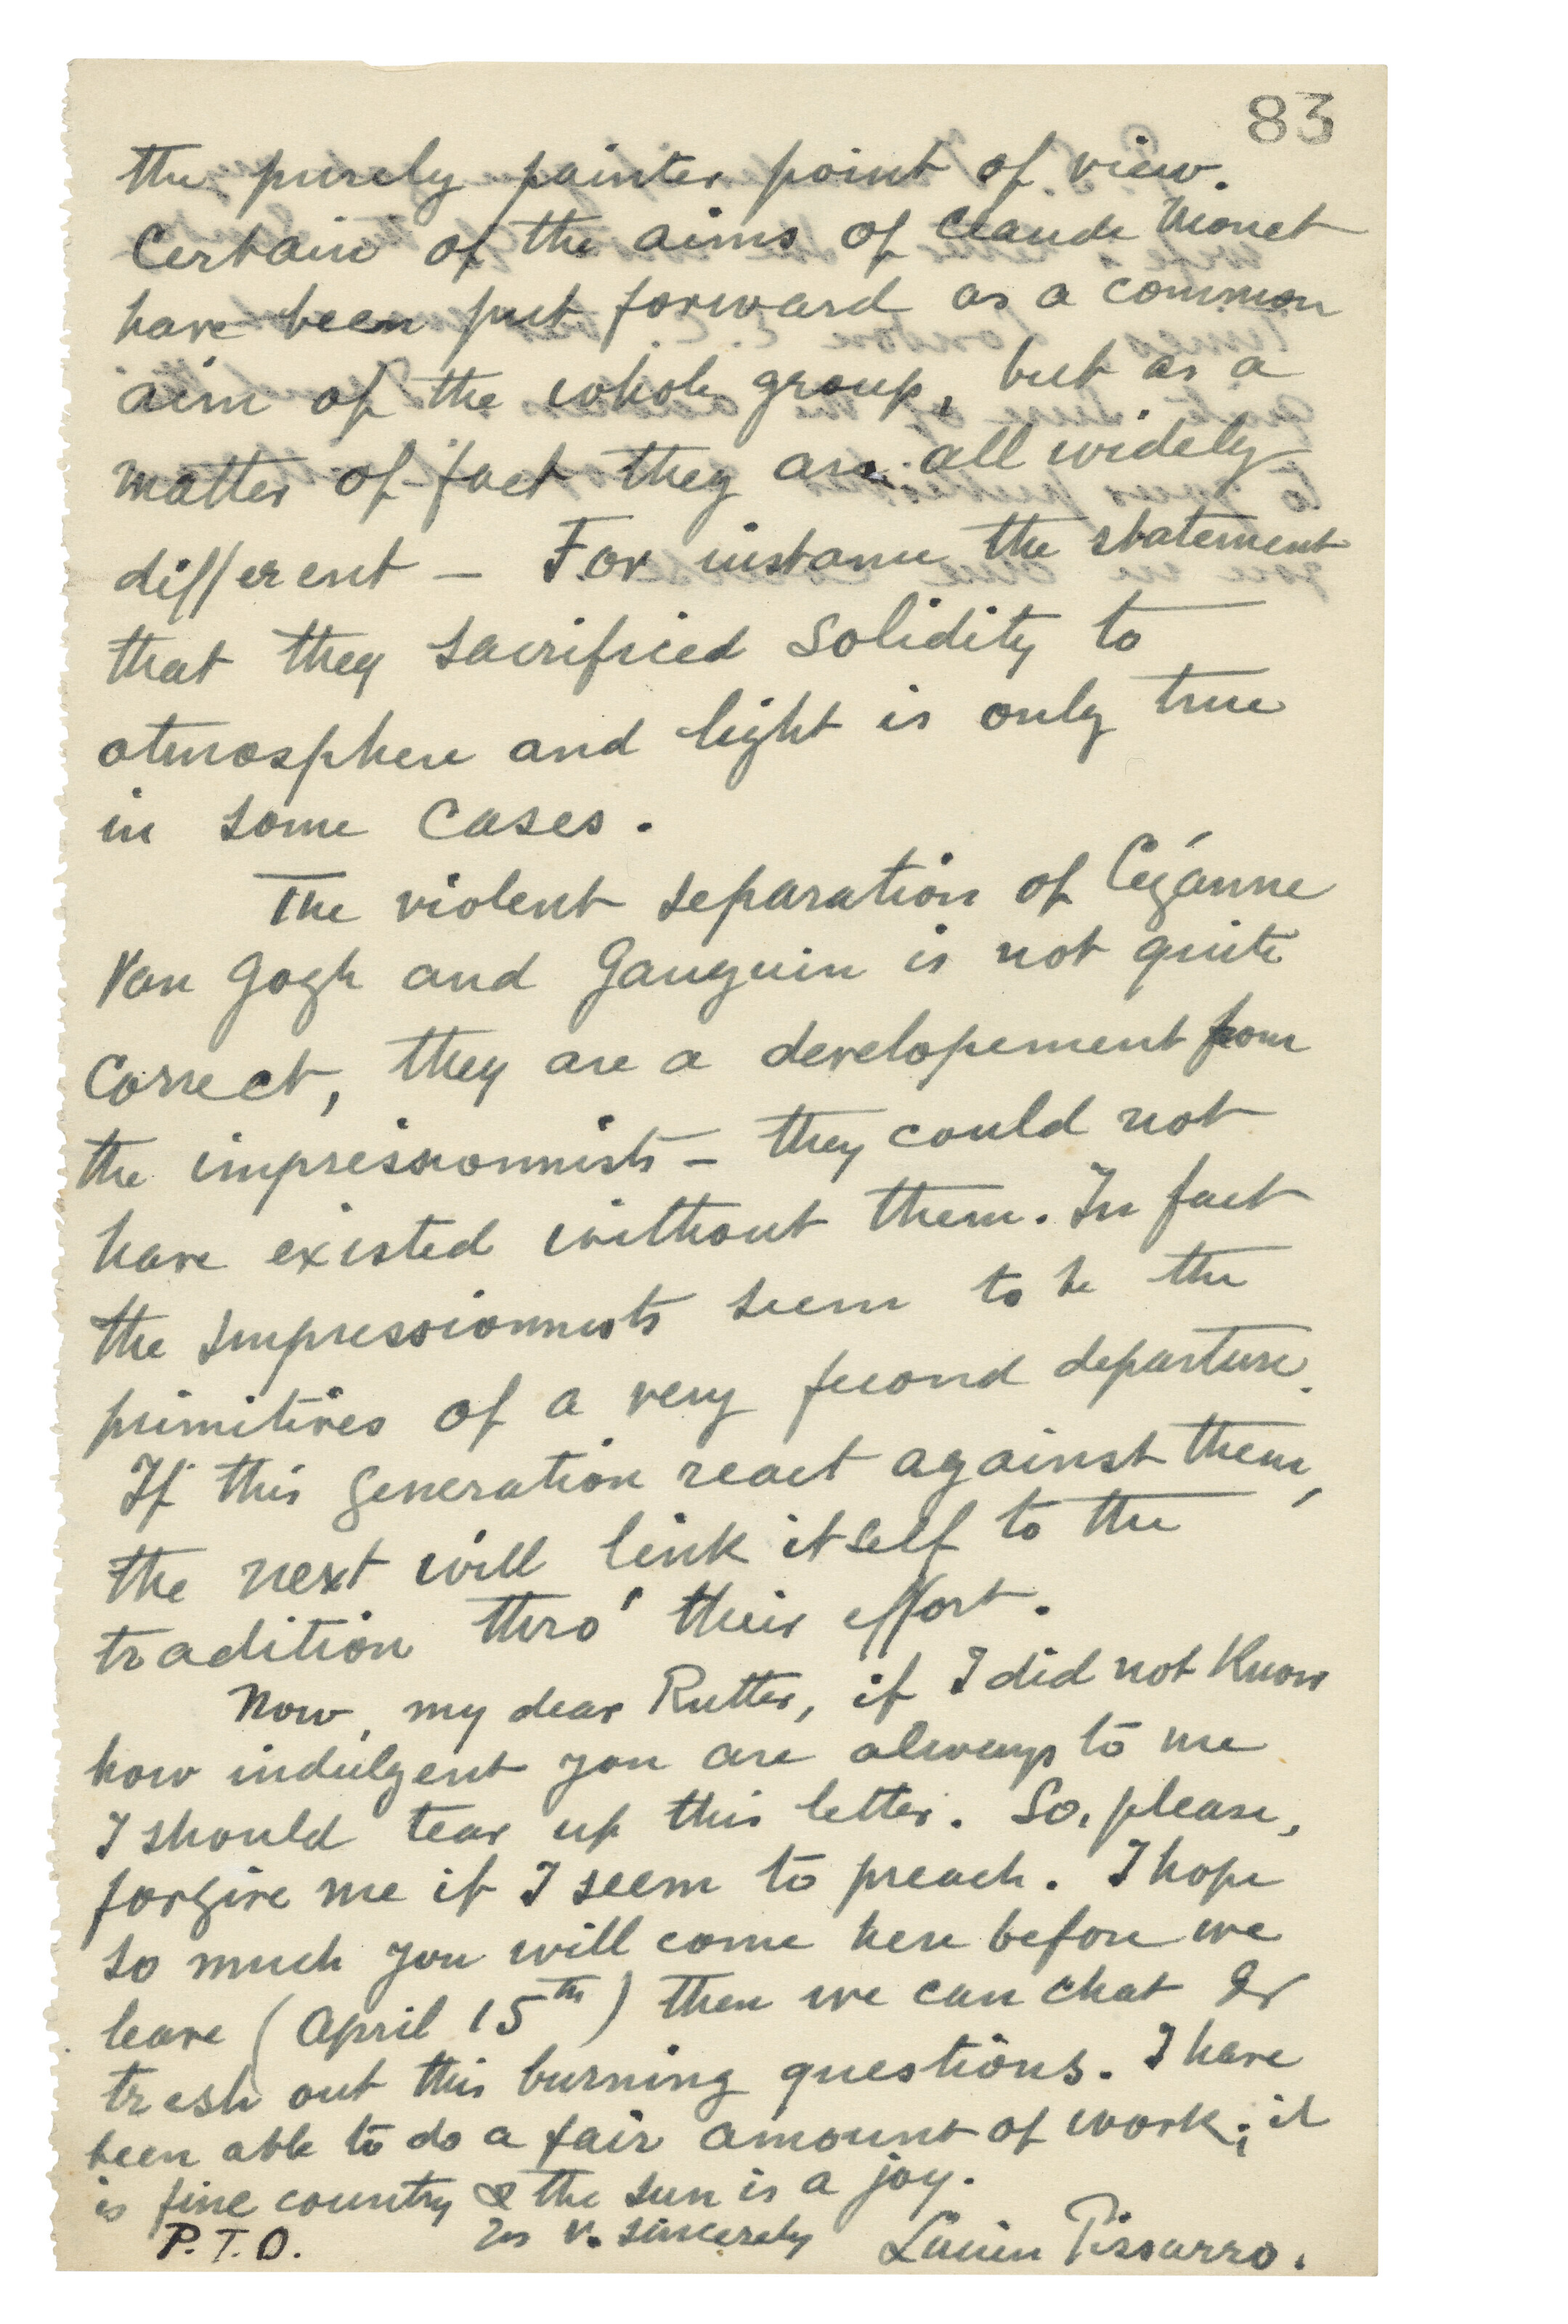 83
the purely painter point of view.
Certain of the aims of Claude Monet
have been put forward as a common
aim of the whole group, but as a
matter of fact they are all widely
different — For instance the statement
that they sacrificed solidity to
atmosphere and light is only true
in some cases.
The violent separation of Cézanne
Van Gogh and Gauguin is not quite
correct, they are a developement from
the impressionnists — they could not
have existed without them. In fact
the Impressionnists seem to be the
primitives of a very fecond departure.
If this generation react against them,
the next will link itself to the
tradition thro' their effort.
Now, my dear Rutter, if I did not Know
how indulgent you are always to me
I should tear up this letter. So, please,
forgive me if I seem to preach. I hope
so much you will come here before we
leave (April 15th) then we can chat &
tresh out this burning questions. I have
been able to do a fair amount of work; it
is fine country & the sun is a joy.
P.T.O. Yrs v. sincerely Lucien Pissarro.